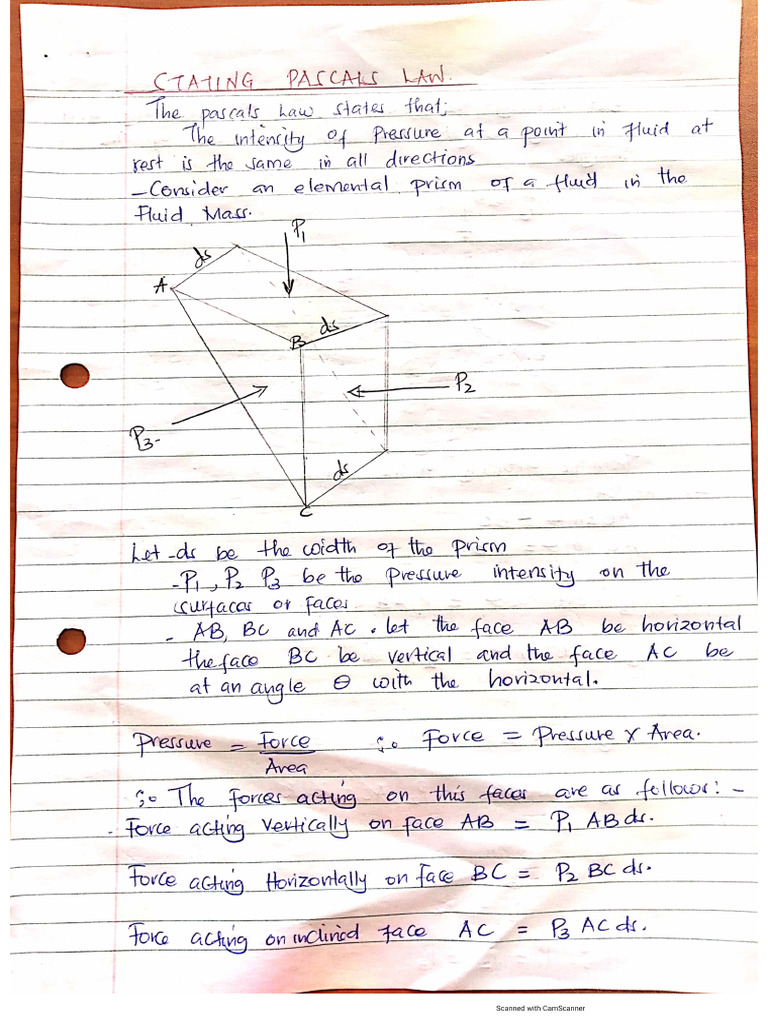 STATING PASCALS LAW.
The pascals Law states that;
The intensity of Pressure at a point in fluid at
rest is the same in all directions
- Consider an elemental prism of a fluid in the
Fluid Mass.
P₁
ds
A
ds
B
P₂
P₃-
ds
C
Let -ds be the width of the prism
- P₁, P₂ P₃ be the pressure intensity on the
surfaces or faces
- AB, BC and AC. let the face AB be horizontal
the face BC be vertical and the face AC be
at an angle θ with the horizontal.
Pressure = Force / Area ∴ Force = Pressure x Area.
∴ The forces acting on this faces are as follows: -
- Force acting Vertically on face AB = P₁ AB ds.
Force acting Horizontally on face BC = P₂ BC ds.
Force acting on inclined face AC = P₃ AC ds.
Scanned with CamScanner